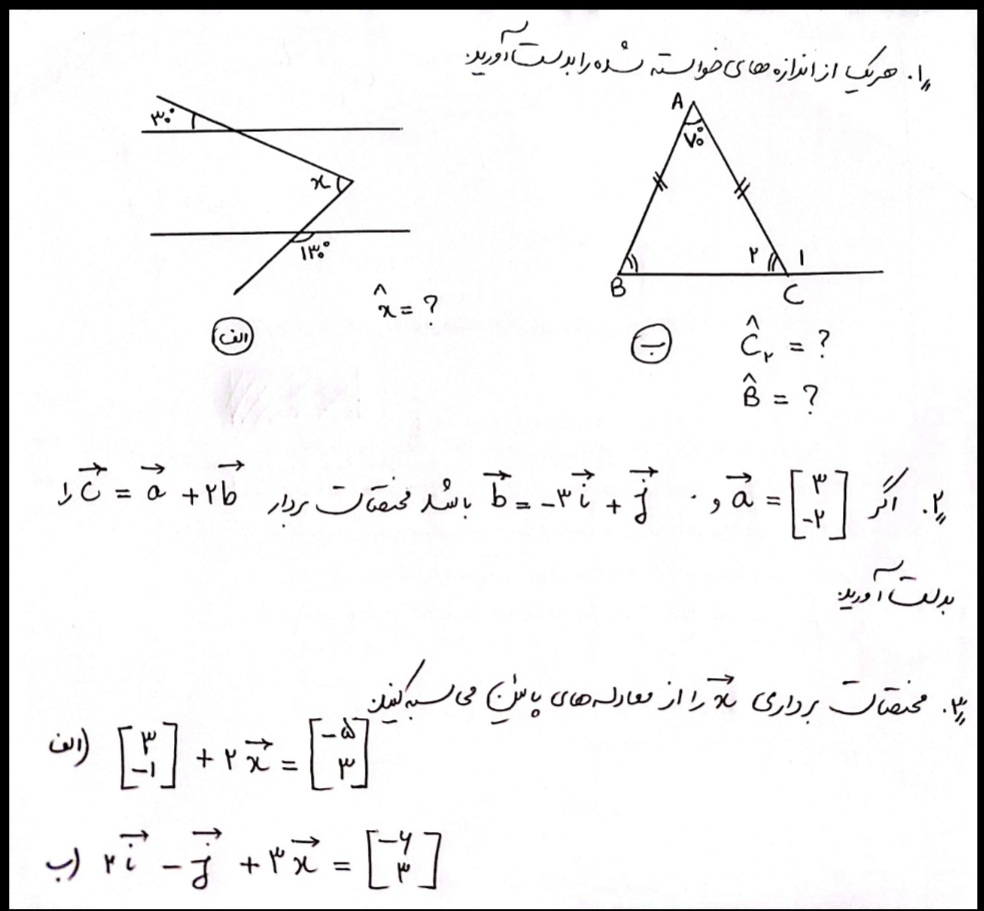 ۱. هر یک از اندازه های خواسته شده را بدست آورید.
۳۰°
x
۱۳۰°
x̂ = ?
الف
A
۷۰°
B
۲
۱
C
ب
Ĉ۲ = ?
B̂ = ?
۲. اگر a⃗ = [۳ -۲] و b⃗ = -۳i⃗ + j⃗ باشد مختصات بردار c⃗ = a⃗ + ۲b⃗ را
بدست آورید.
۳. مختصات برداری x⃗ را از معادله های پایین محاسبه کنید.
الف) [۳ -۱] + ۲x⃗ = [-۵ ۳]
ب) ۲i⃗ - j⃗ + ۳x⃗ = [-۴ ۳]